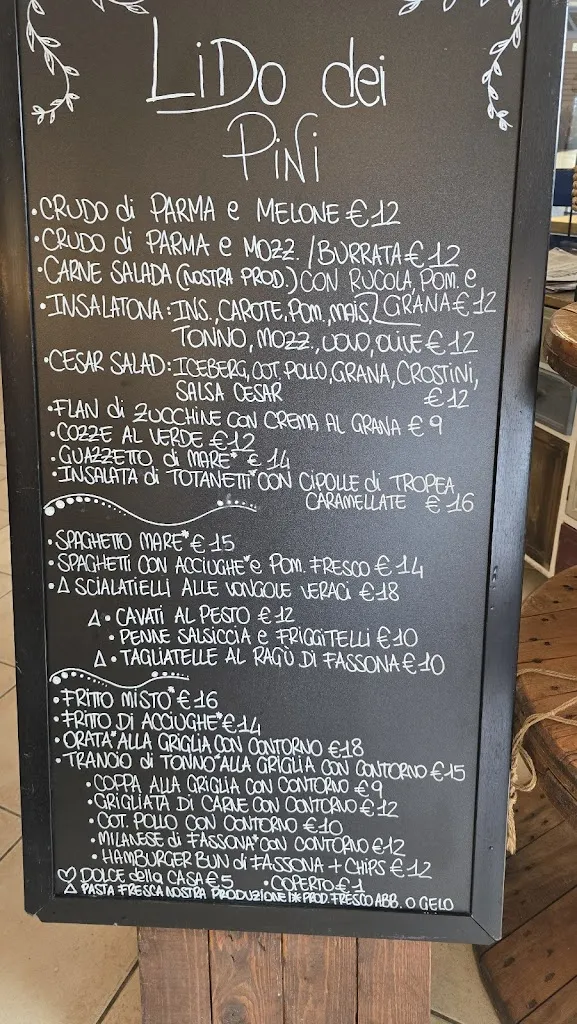 LiDo dei
PiNi
•CRUDO di PARMA e MELONE €12
•CRUDO di PARMA e MOZZ. /BURRATA €12
•CARNE SALADA (NOSTRA PROD.) CON RUCOLA, POM. e
GRANA €12
•INSALATONA: INS., CAROTE, POM., MAIS,
TONNO, MOZZ., UOVO, OLIVE €12
•CESAR SALAD: ICEBERG, COT. POLLO, GRANA, CROSTINI,
SALSA CESAR €12
•FLAN di ZUCCHINE CON CREMA AL GRANA €9
•COZZE AL VERDE €12
•GUAZZETTO di MARE* €14
•INSALATA di TOTANETTI* CON CIPOLLE di TROPEA
CARAMELLATE €16
•SPAGHETTO MARE* €15
•SPAGHETTI CON ACCIUGHE* e POM. FRESCO €14
•Δ SCIALATIELLI ALLE VONGOLE VERACI €18
Δ • CAVATI AL PESTO €12
• PENNE SALSICCIA e FRIGGITELLI €10
Δ • TAGLIATELLE AL RAGÙ DI FASSONA €10
•FRITTO MISTO* €16
•FRITTO DI ACCIUGHE* €14
•ORATA* ALLA GRIGLIA CON CONTORNO €18
•TRANCIO di TONNO* ALLA GRIGLIA CON CONTORNO €15
•COPPA ALLA GRIGLIA CON CONTORNO €9
•GRIGLIATA DI CARNE CON CONTORNO €12
•COT. POLLO CON CONTORNO €10
•MILANESE di FASSONA* CON CONTORNO €12
•HAMBURGER BUN di FASSONA + CHIPS €12
♡ DOLCE della CASA €5 •COPERTO €1
Δ PASTA FRESCA NOSTRA PRODUZIONE * PROD. FRESCO ABB. O GELO